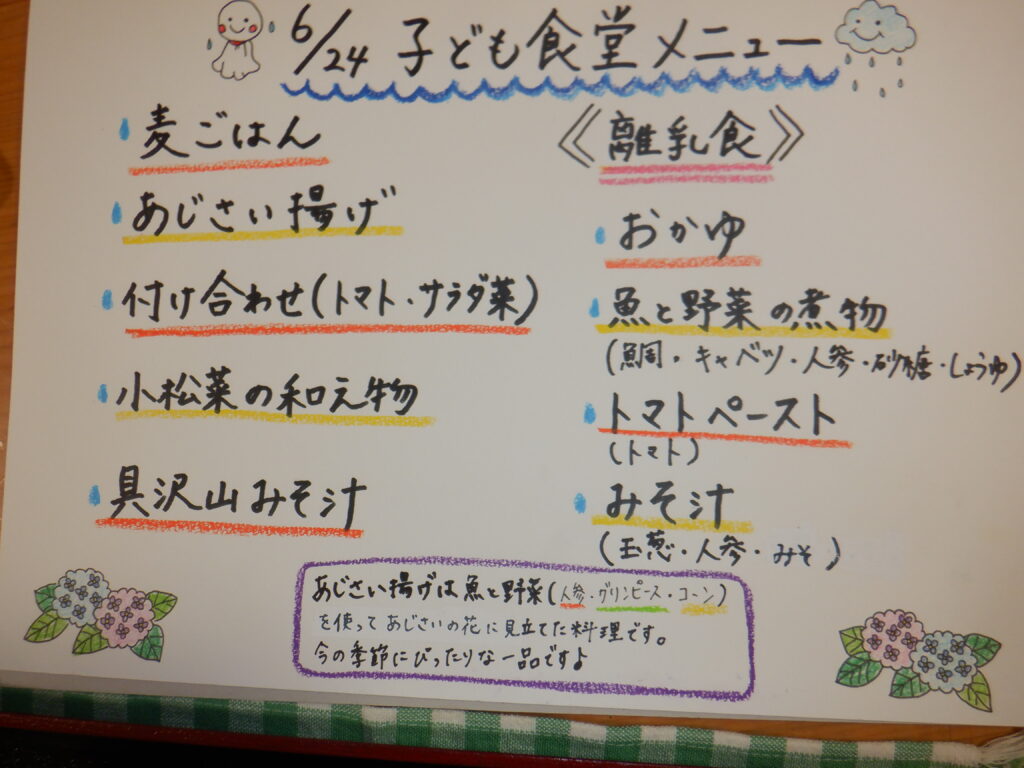 6/24 子ども食堂メニュー
麦ごはん
あじさい揚げ
付け合わせ(トマト・サラダ菜)
小松菜の和え物
具沢山みそ汁
《離乳食》
おかゆ
魚と野菜の煮物
(鯛・キャベツ・人参・砂糖・しょうゆ)
トマトペースト
(トマト)
みそ汁
(玉葱・人参・みそ)
あじさい揚げは魚と野菜(人参・グリンピース・コーン)
を使ってあじさいの花に見立てた料理です。
今の季節にぴったりな一品ですよ